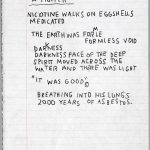 NICOTINE WALKS ON EGGSHELLS
MEDICATED
THE EARTH WAS
FORMLESS VOID
DARKNESS
DARKNESS FACE OF THE DEEP
SPIRIT MOVED ACROSS THE
WATER AND THERE WAS LIGHT
"IT WAS GOOD"©
BREATHING INTO HIS LUNGS
2000 YEARS OF ASBESTOS.